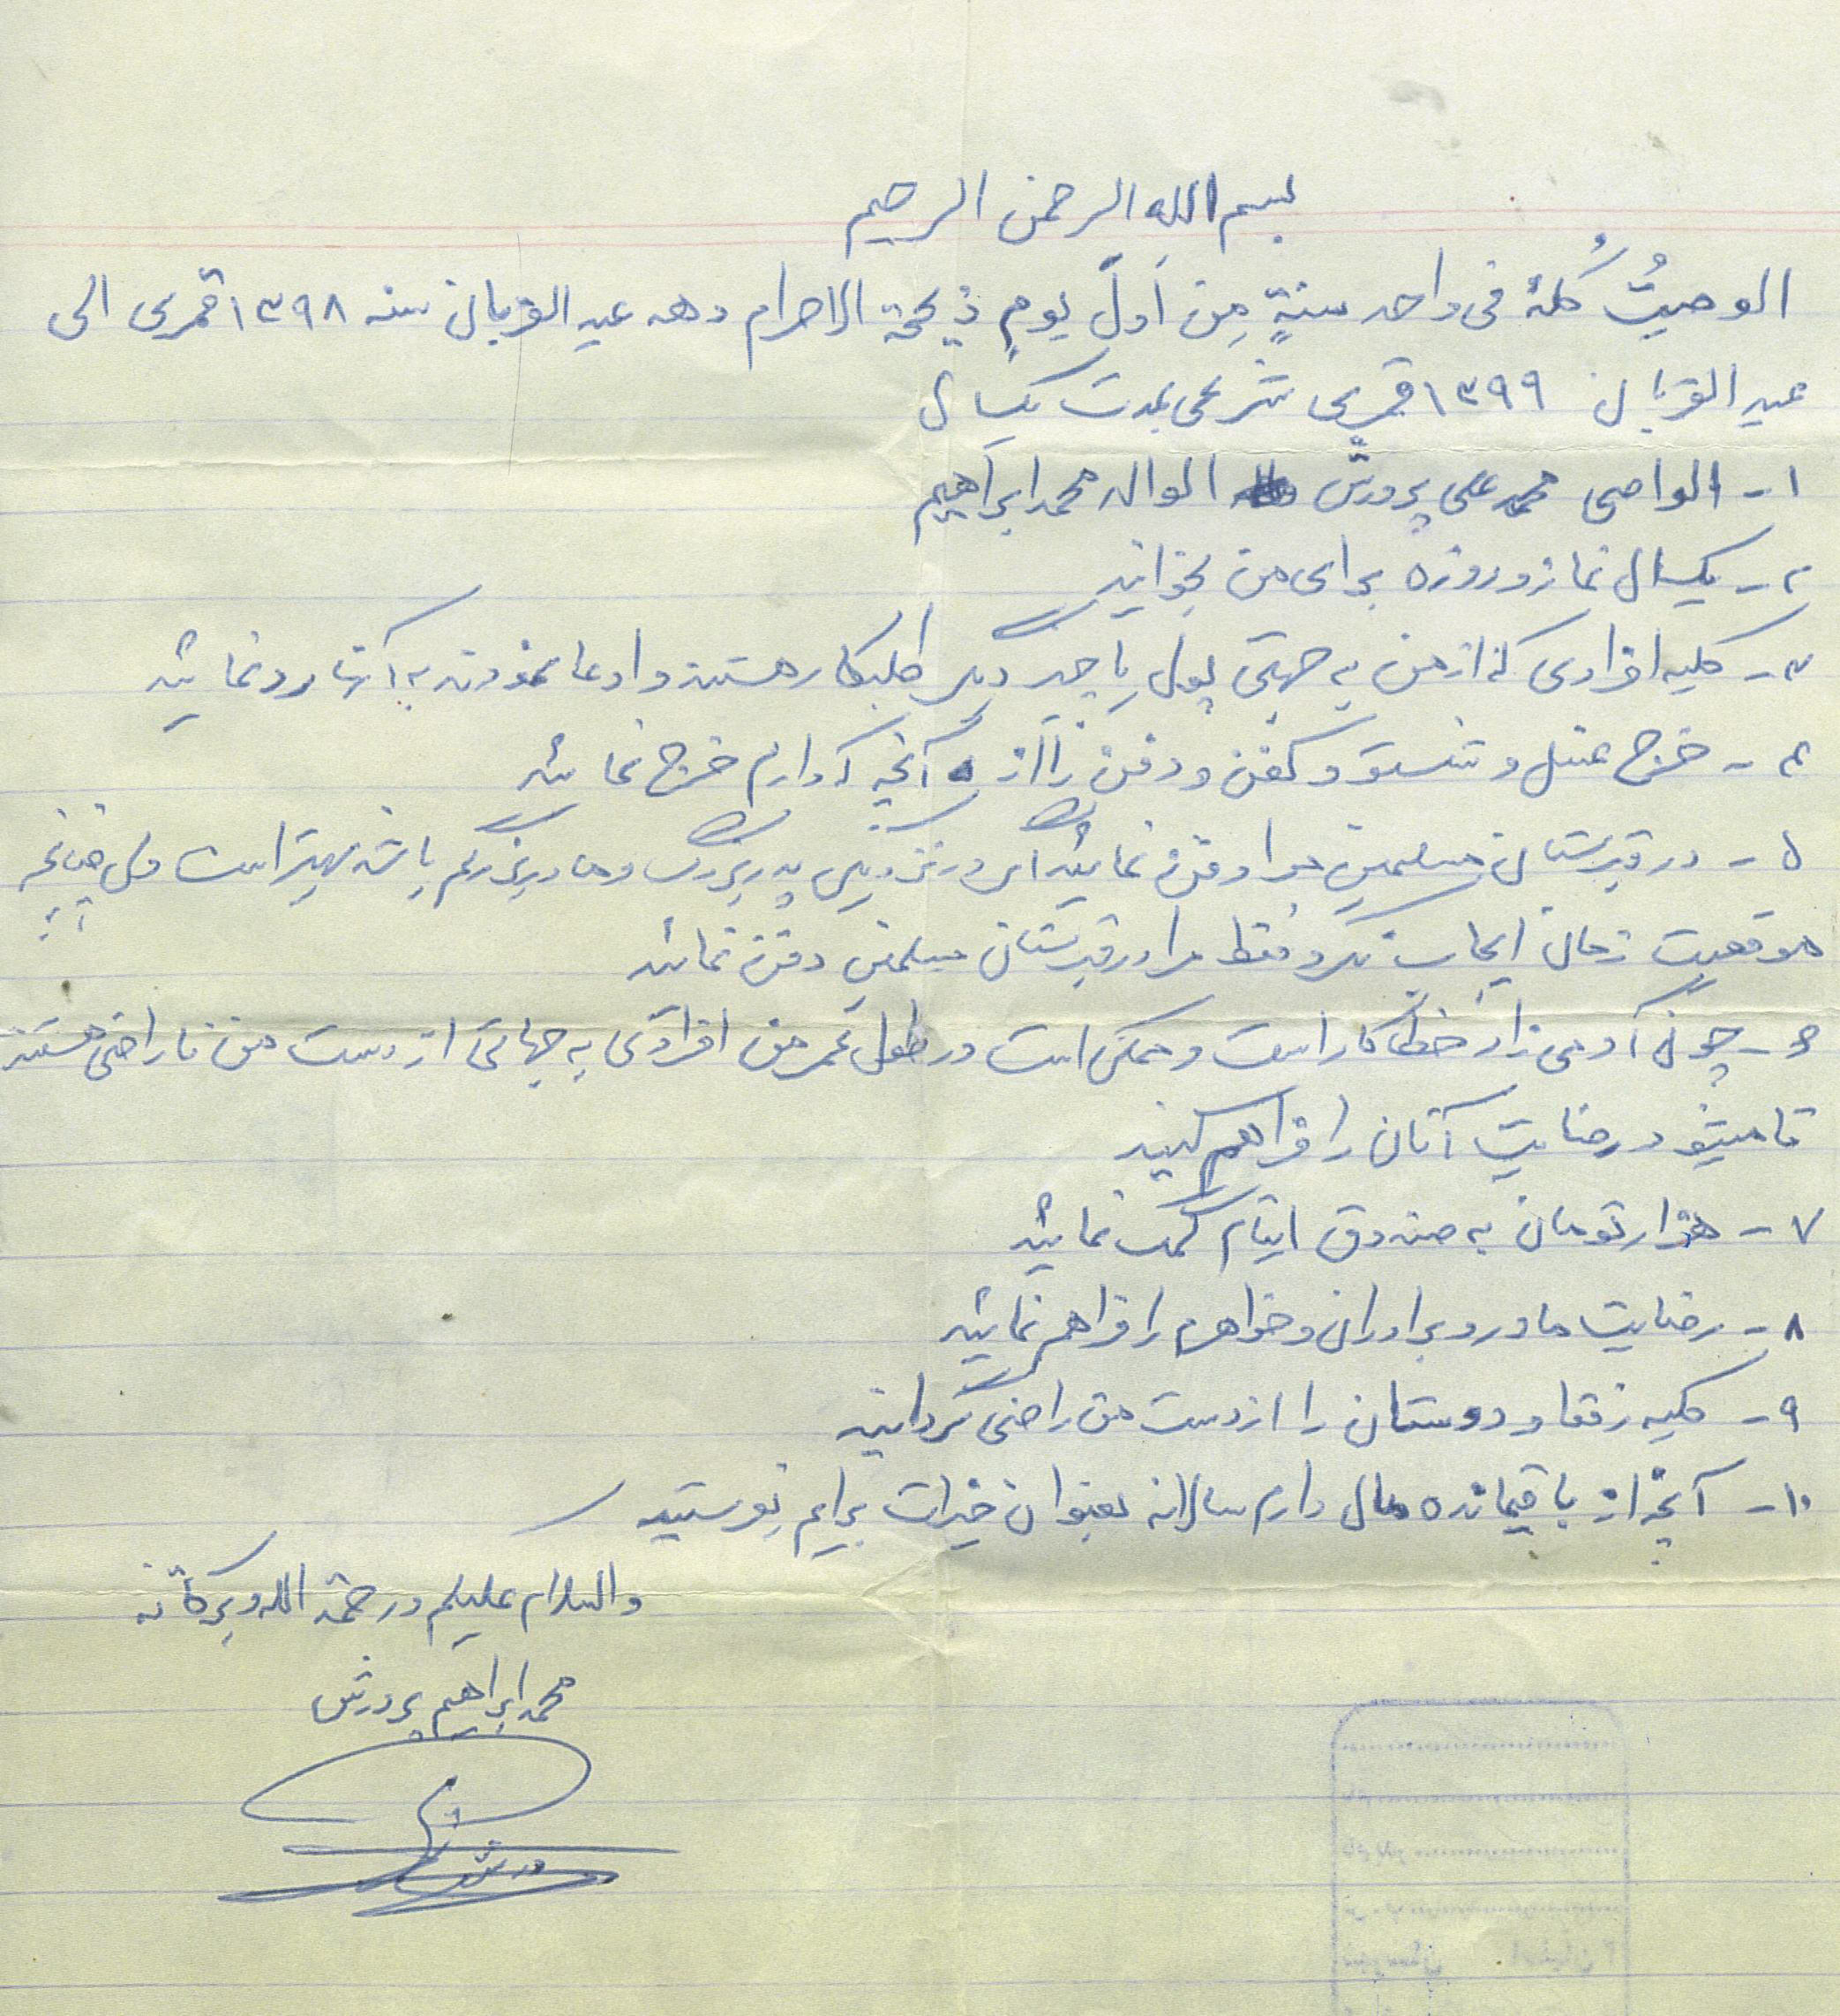 بسم الله الرحمن الرحیم
الوصیتُ کُلهُ فی واحد سنةٍ مِن اَولِّ یومٍ ذیحجة الاحرام دهه عید القربان سنه ۱۳۹۸ قمری الی
عید القربان ۱۳۹۹ قمری شرعی بمدت یکسال
۱- الواصی محمد علی پرورش الوالد محمد ابراهیم
۲- یکسال نماز و روزه برای من بخوانید
۳- کلیه افرادی که از من به جهتی پول یا چیز دیگر طلبکار هستند و ادعا نمودند به آنها رد نمائید
۴- خرج غسل و شستو و کفن و دفن را از آنچه که دارم خرج نمائید
۵- در قبرستان مسلمین مرا دفن نمائید اگر در نزدیکی پدربزرگ و مادربزرگم باشد بهتر است ولی چنانچه
موقعیت زمان ایجاب نکرد فقط مرا در قبرستان مسلمین دفن نمائید
۶- چون آدمی زاد خطاکار است و ممکن است در طول عمر من افرادی به جهاتی از دست من ناراضی هستند
تا میشود رضایت آنان را فراهم کنید
۷- هزار تومان به صندوق ایتام کمک نمائید
۸- رضایت مادر و برادران و خواهرم را فراهم نمائید
۹- کلیه رفقا و دوستان را از دست من راضی گردانید
۱۰- آنچه از باقیمانده مال دارم سالانه بعنوان خیرات برایم بفرستید
والسلام علیکم و رحمة الله و برکاته
محمد ابراهیم پرورش